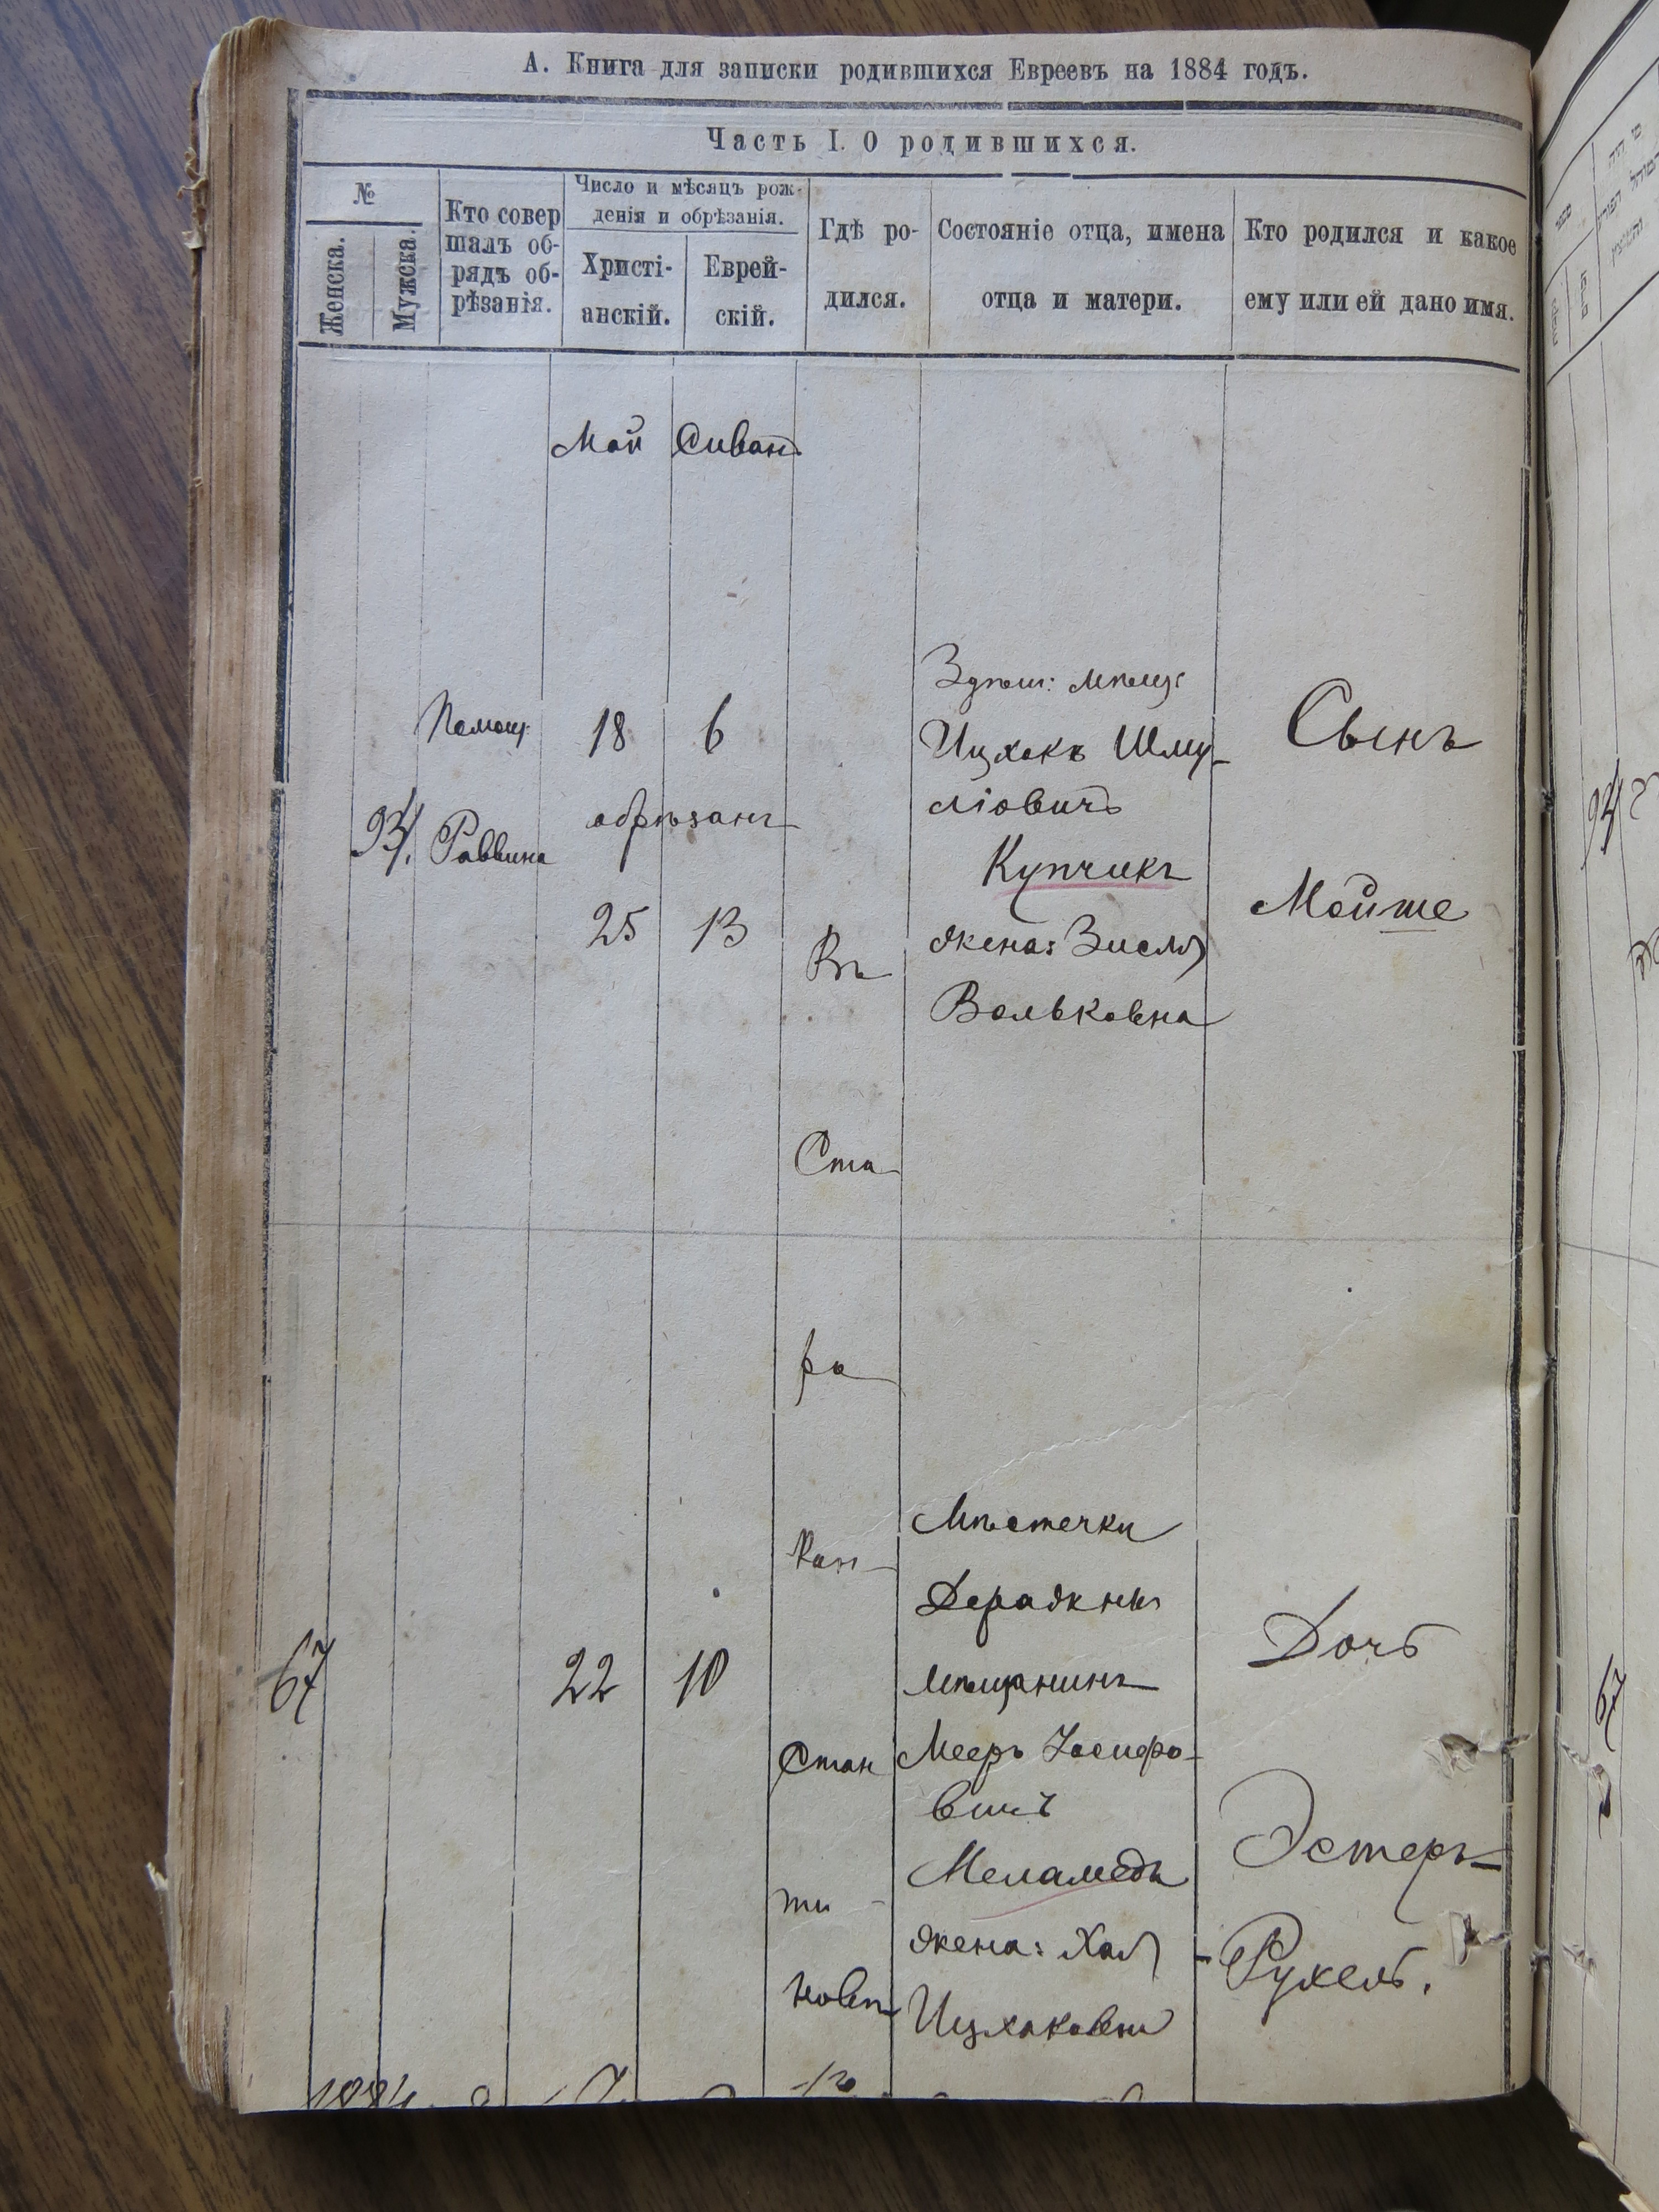 А. Книга для записки родившихся Евреевъ на 1884 годъ.
Часть I. О родившихся.
№
Женска.
Мужска.
Кто совер
шалъ об-
рядъ об-
рѣзанія.
Число и мѣсяцъ рож-
денія и обрѣзанія.
Христі-
анскій.
Еврей-
скій.
Гдѣ ро-
дился.
Состояніе отца, имена
отца и матери.
Кто родился и какое
ему или ей дано имя.
Май
Сиванъ
94.
Помощ.
Раввина
18
6
обрѣзанъ
25
13
Въ
Ста-
ро-
Кон-
стан
ти-
новѣ
Здѣш: мѣщ:
Ицхокъ Шму-
ліовичъ
Купчикъ
жена: Зисля
Вольковна
Сынъ
Мойше
67
22
10
Мѣстечки
Деражни
мѣщанинъ
Мееръ Іосифо-
вичъ
Меламедъ
жена: Хая
Ицхоковна
Дочь
Эстеръ-
-Рухель.
94
67